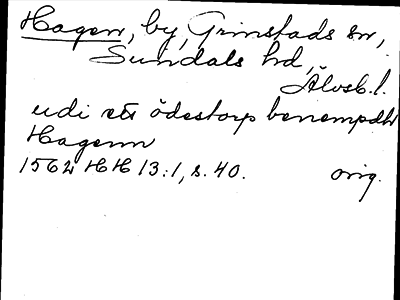 Hagen, by, Grinstads sn,
Sundals hd,
Älvsb. l.
udi ett ödestorp benempdh
Hagenn
1562 HH 13:1, s. 40. orig.